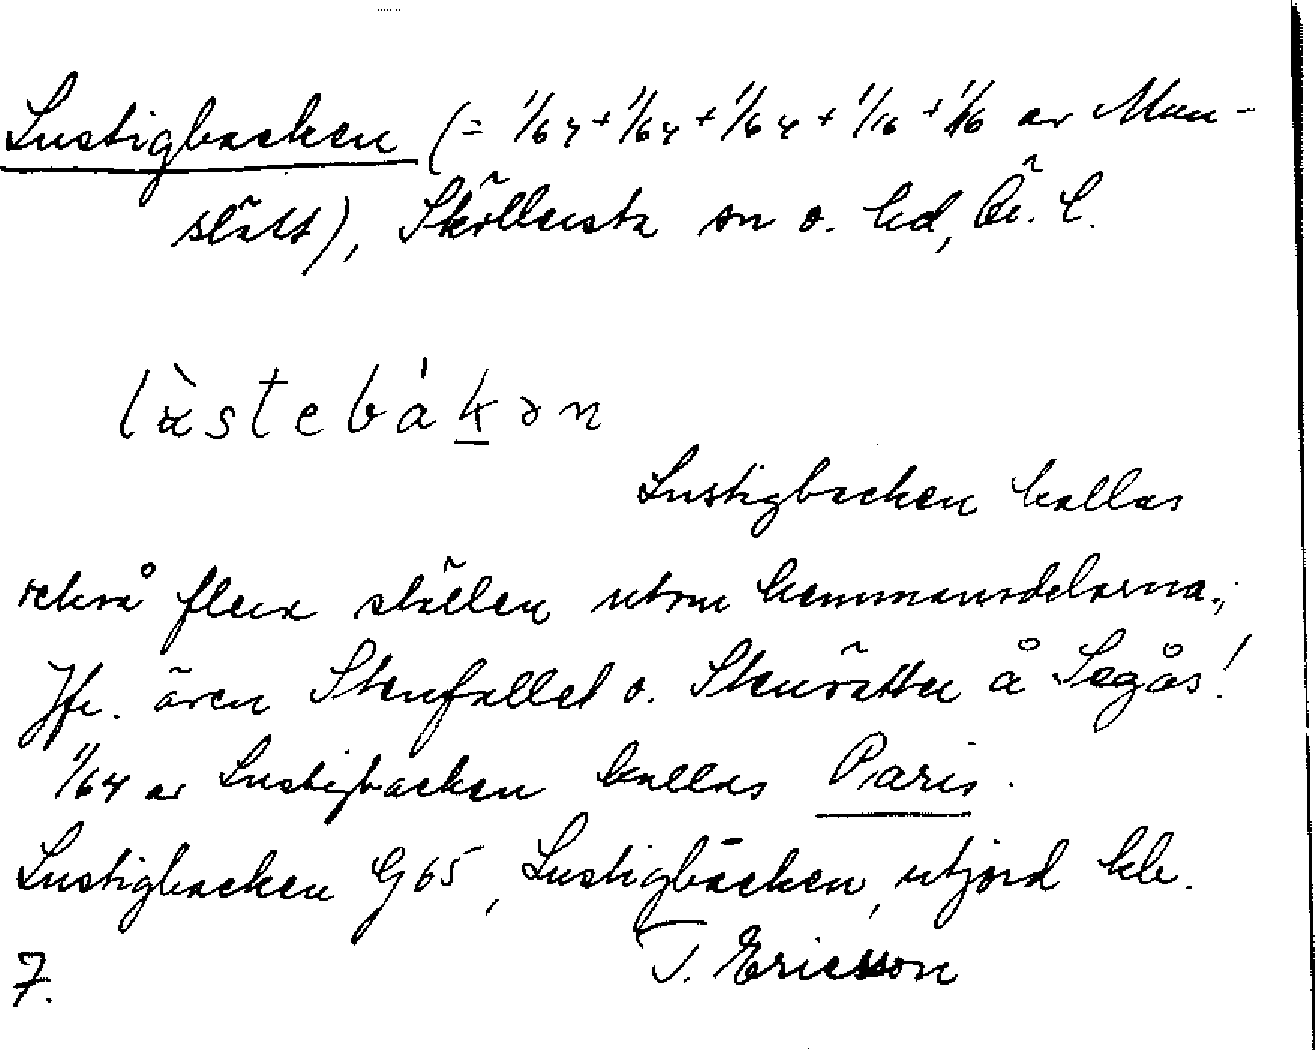 Lustigbacken (= 1/64 + 1/64 + 1/64 + 1/16 + 1/16 av Mun-
slätt), Sköllersta sn o. hd, Ör. l.
lùstebákən
Lustigbacken kallas
också flera ställen utom hemmansdelarna;
Jfr. även Stenfallet o. Stenrättu å Segås!
1/64 av Lustigbacken kallas Paris.
Lustigbacken G 65, Lustigbäcken, utjord kb.
7.
T. Ericsson